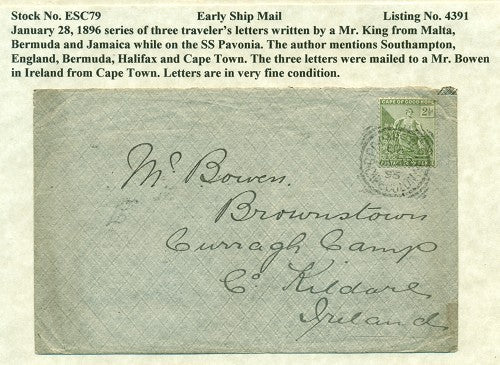 Stock No. ESC79 Early Ship Mail Listing No. 4391
January 28, 1896 series of three traveler's letters written by a Mr. King from Malta,
Bermuda and Jamaica while on the SS Pavonia. The author mentions Southampton,
England, Bermuda, Halifax and Cape Town. The three letters were mailed to a Mr. Bowen
in Ireland from Cape Town. Letters are in very fine condition.
CAPE OF GOOD HOPE
Mr Bowen.
Brownstown
Curragh Camp
Co Kildare
Ireland